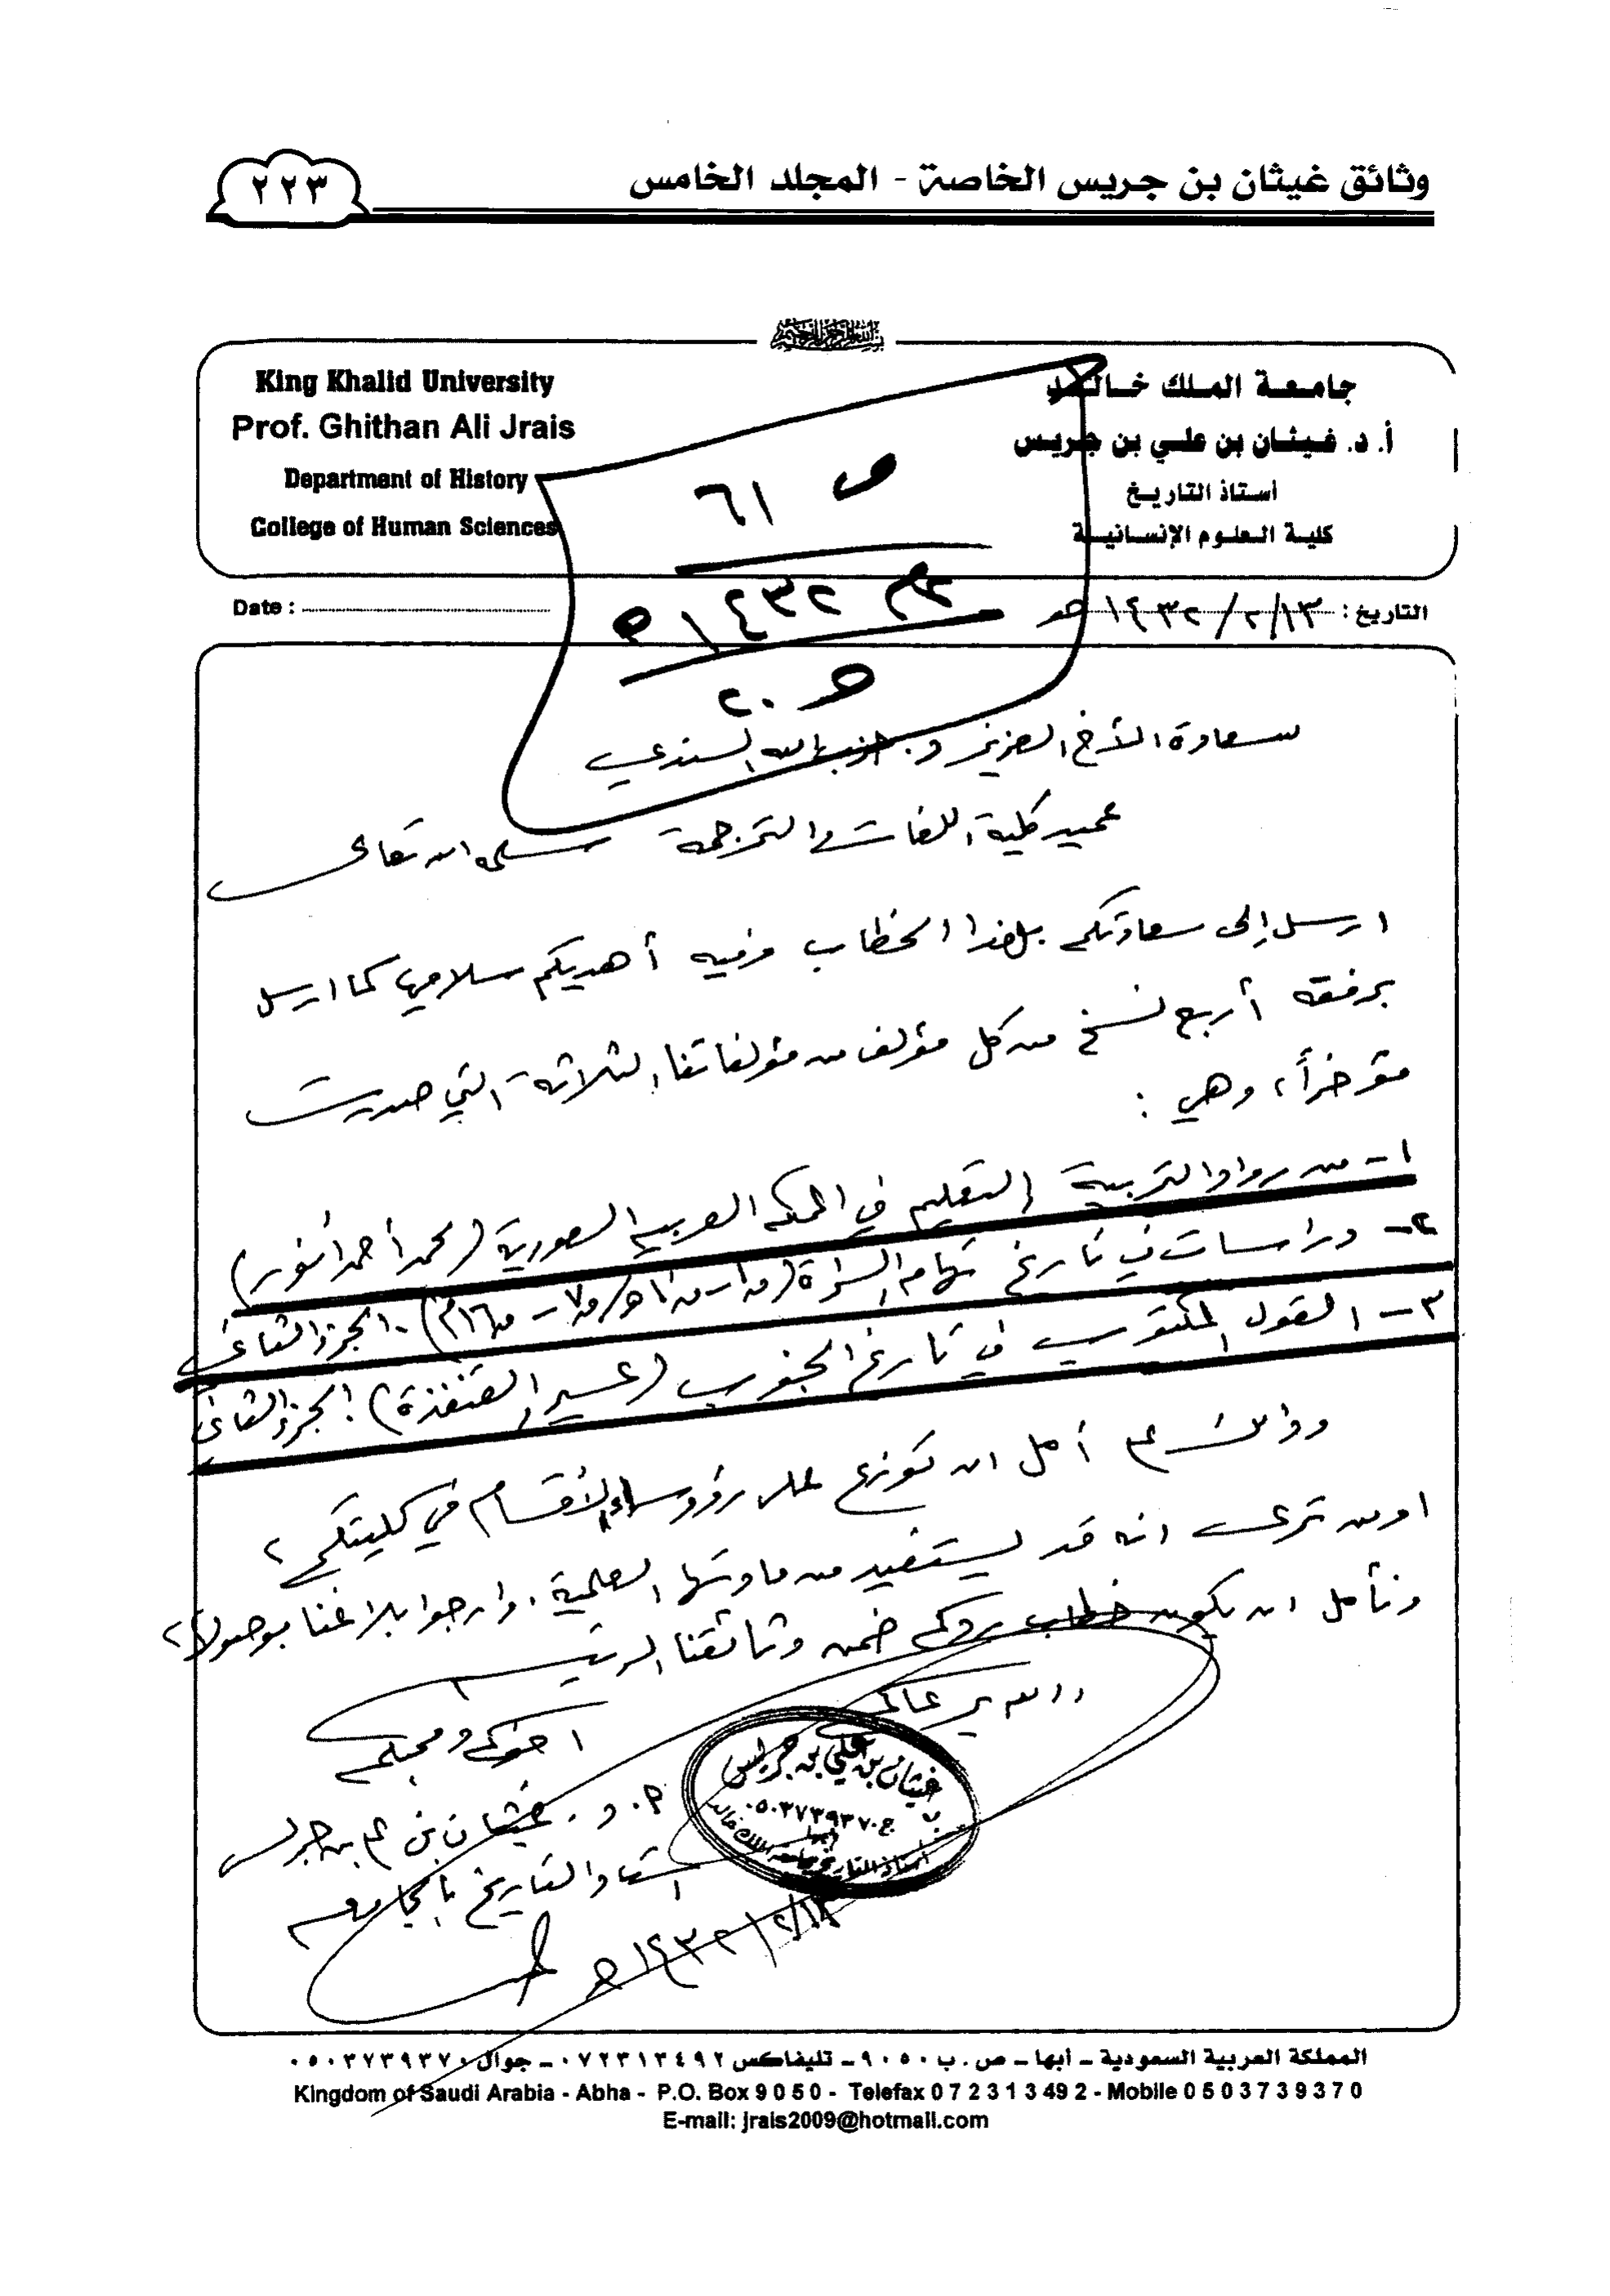 وثائق غيثان بن جريس الخاصة - المجلد الخامس
٢٢٣
بسم الله الرحمن الرحيم
King Khalid University
Prof. Ghithan Ali Jrais
Department of History
College of Human Sciences
جامعة الملك خالد
أ. د. غيثان بن علي بن جريس
أستاذ التاريخ
كلية العلوم الإنسانية
ص ٦١
١٤٣٢ هـ
٢٠
Date :
التاريخ : ١٣/٢/١٤٣٢هـ
سعادة الأخ العزيز د. السندي
عميد كلية اللغات والترجمة سلمه الله تعالى
ارسل إلى سعادتكم بهذا الخطاب وفيه أهديكم سلامي كما ارسل
برفقه أربع نسخ من كل مؤلف من مؤلفاتنا الثلاثة التي صدرت
مؤخراً، وهي :
١- من رواد التربية والتعليم في المملكة العربية السعودية (محمد أحمد أنور)
٢- دراسات في تاريخ تهامة والسراة (ق١-ق١٠هـ/ق٧-ق١٦م). الجزء الثاني
٣- القول المكتوب في تاريخ الجنوب (عسير والقنفذة) الجزء الثاني
أمل ان توزع على رؤوساء الأقسام في كليتكم،
او من ترى انه قد يستفيد من مادتها العلمية، وارجوا بلاغنا بوصولها،
ونأمل ان يكون خطاب ردكم ضمن وثائقنا الرئيسة
والله يرعاكم
اخوكم ومحبكم
أ. د. غيثان بن علي بن جريس
استاذ التاريخ بالجامعة
١٣/٢/١٤٣٢هـ
غيثان بن علي بن جريس
ج ٠٥٠٣٧٣٩٣٧٠
أستاذ التاريخ بجامعة الملك خالد
أبها
المملكة العربية السعودية - أبها - ص . ب ٩٠٥٠ - تليفاكس ٠٧٢٣١٣٤٩٢ - جوال ٠٥٠٣٧٣٩٣٧٠
Kingdom of Saudi Arabia - Abha - P.O. Box 9050 - Telefax 072313492 - Mobile 0503739370
E-mail: jrais2009@hotmail.com